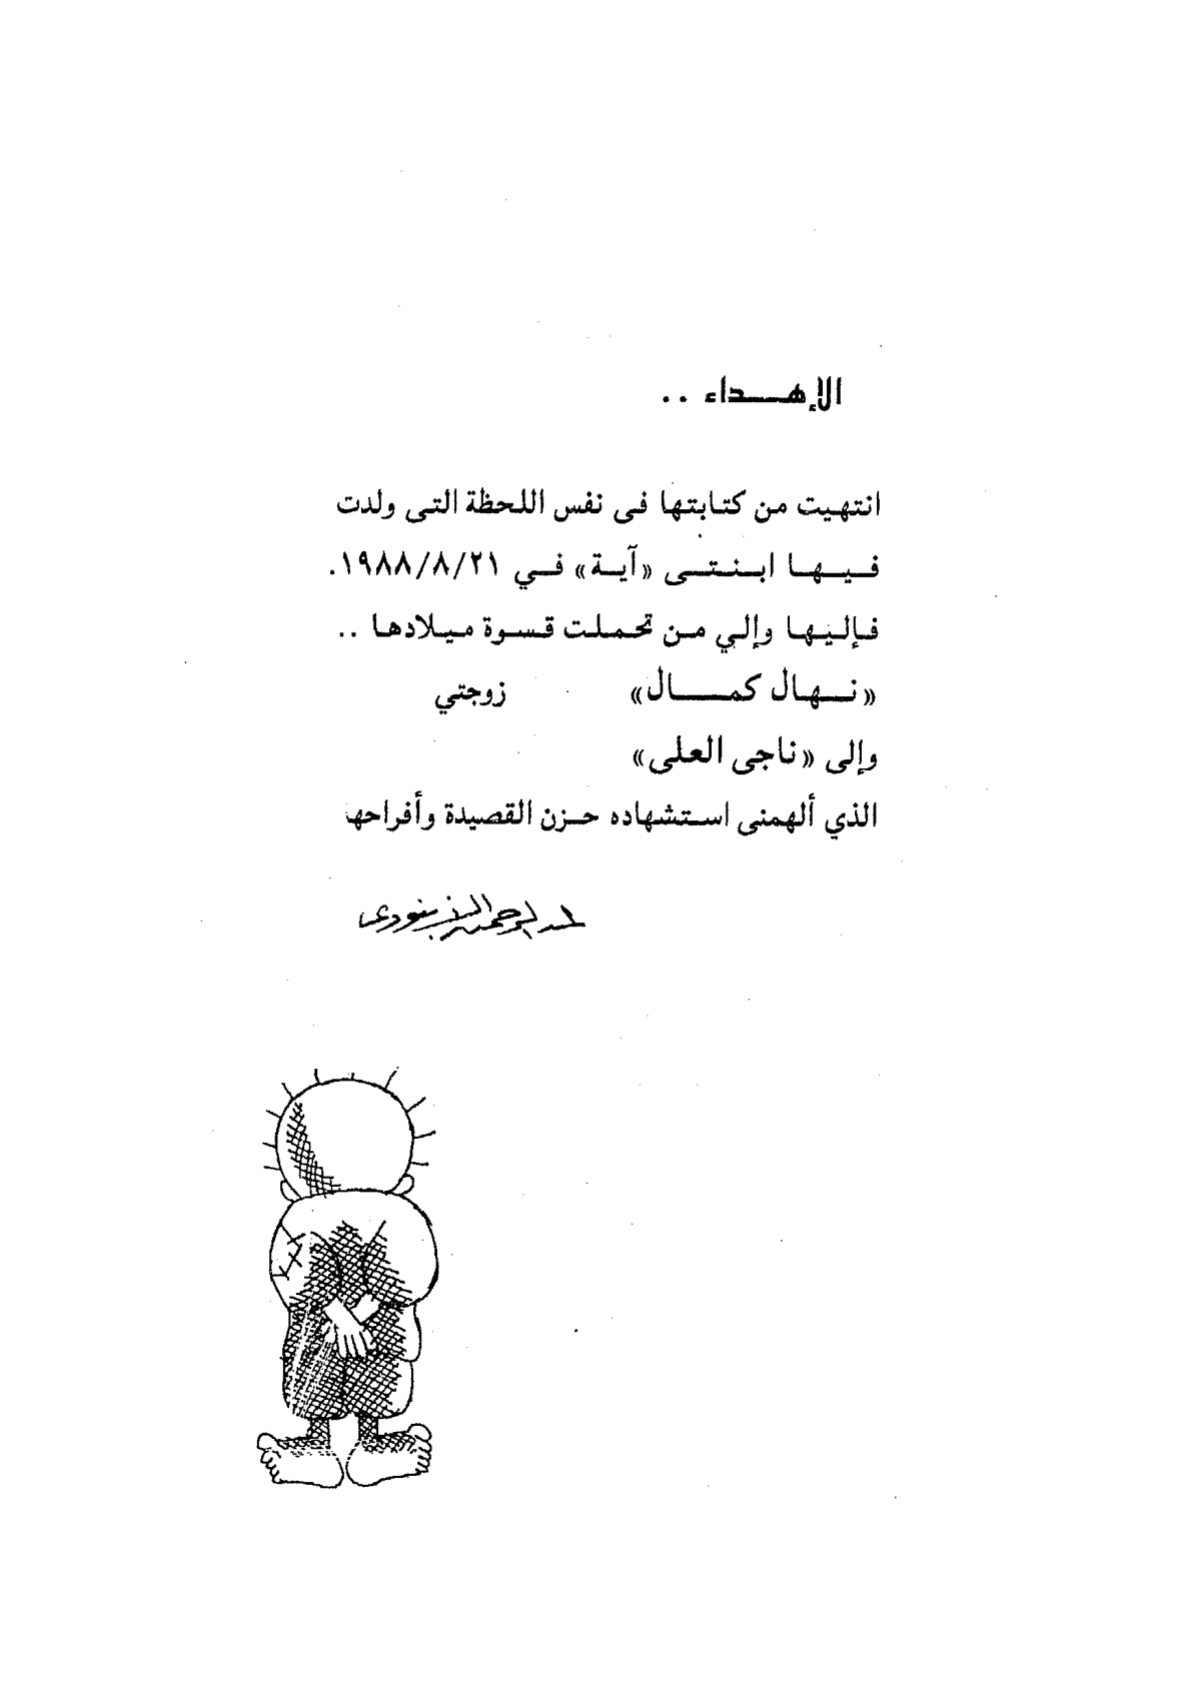 الإهداء ..
انتهيت من كتابتها فى نفس اللحظة التى ولدت
فيها ابنتى «آية» في ١٩٨٨/٨/٢١.
فإليها وإلي من تحملت قسوة ميلادها ..
«نهال كمال» زوجتي
وإلى «ناجى العلى»
الذي ألهمنى استشهاده حزن القصيدة وأفراحها
عبد الرحمن الأبنودى